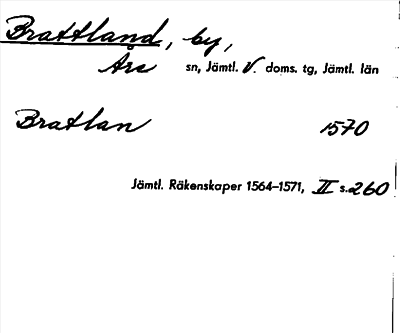 Brattland, by,
Åre sn, Jämtl. V. doms. tg, Jämtl. län
Bratlan 1570
Jämtl. Räkenskaper 1564–1571, II s. 260